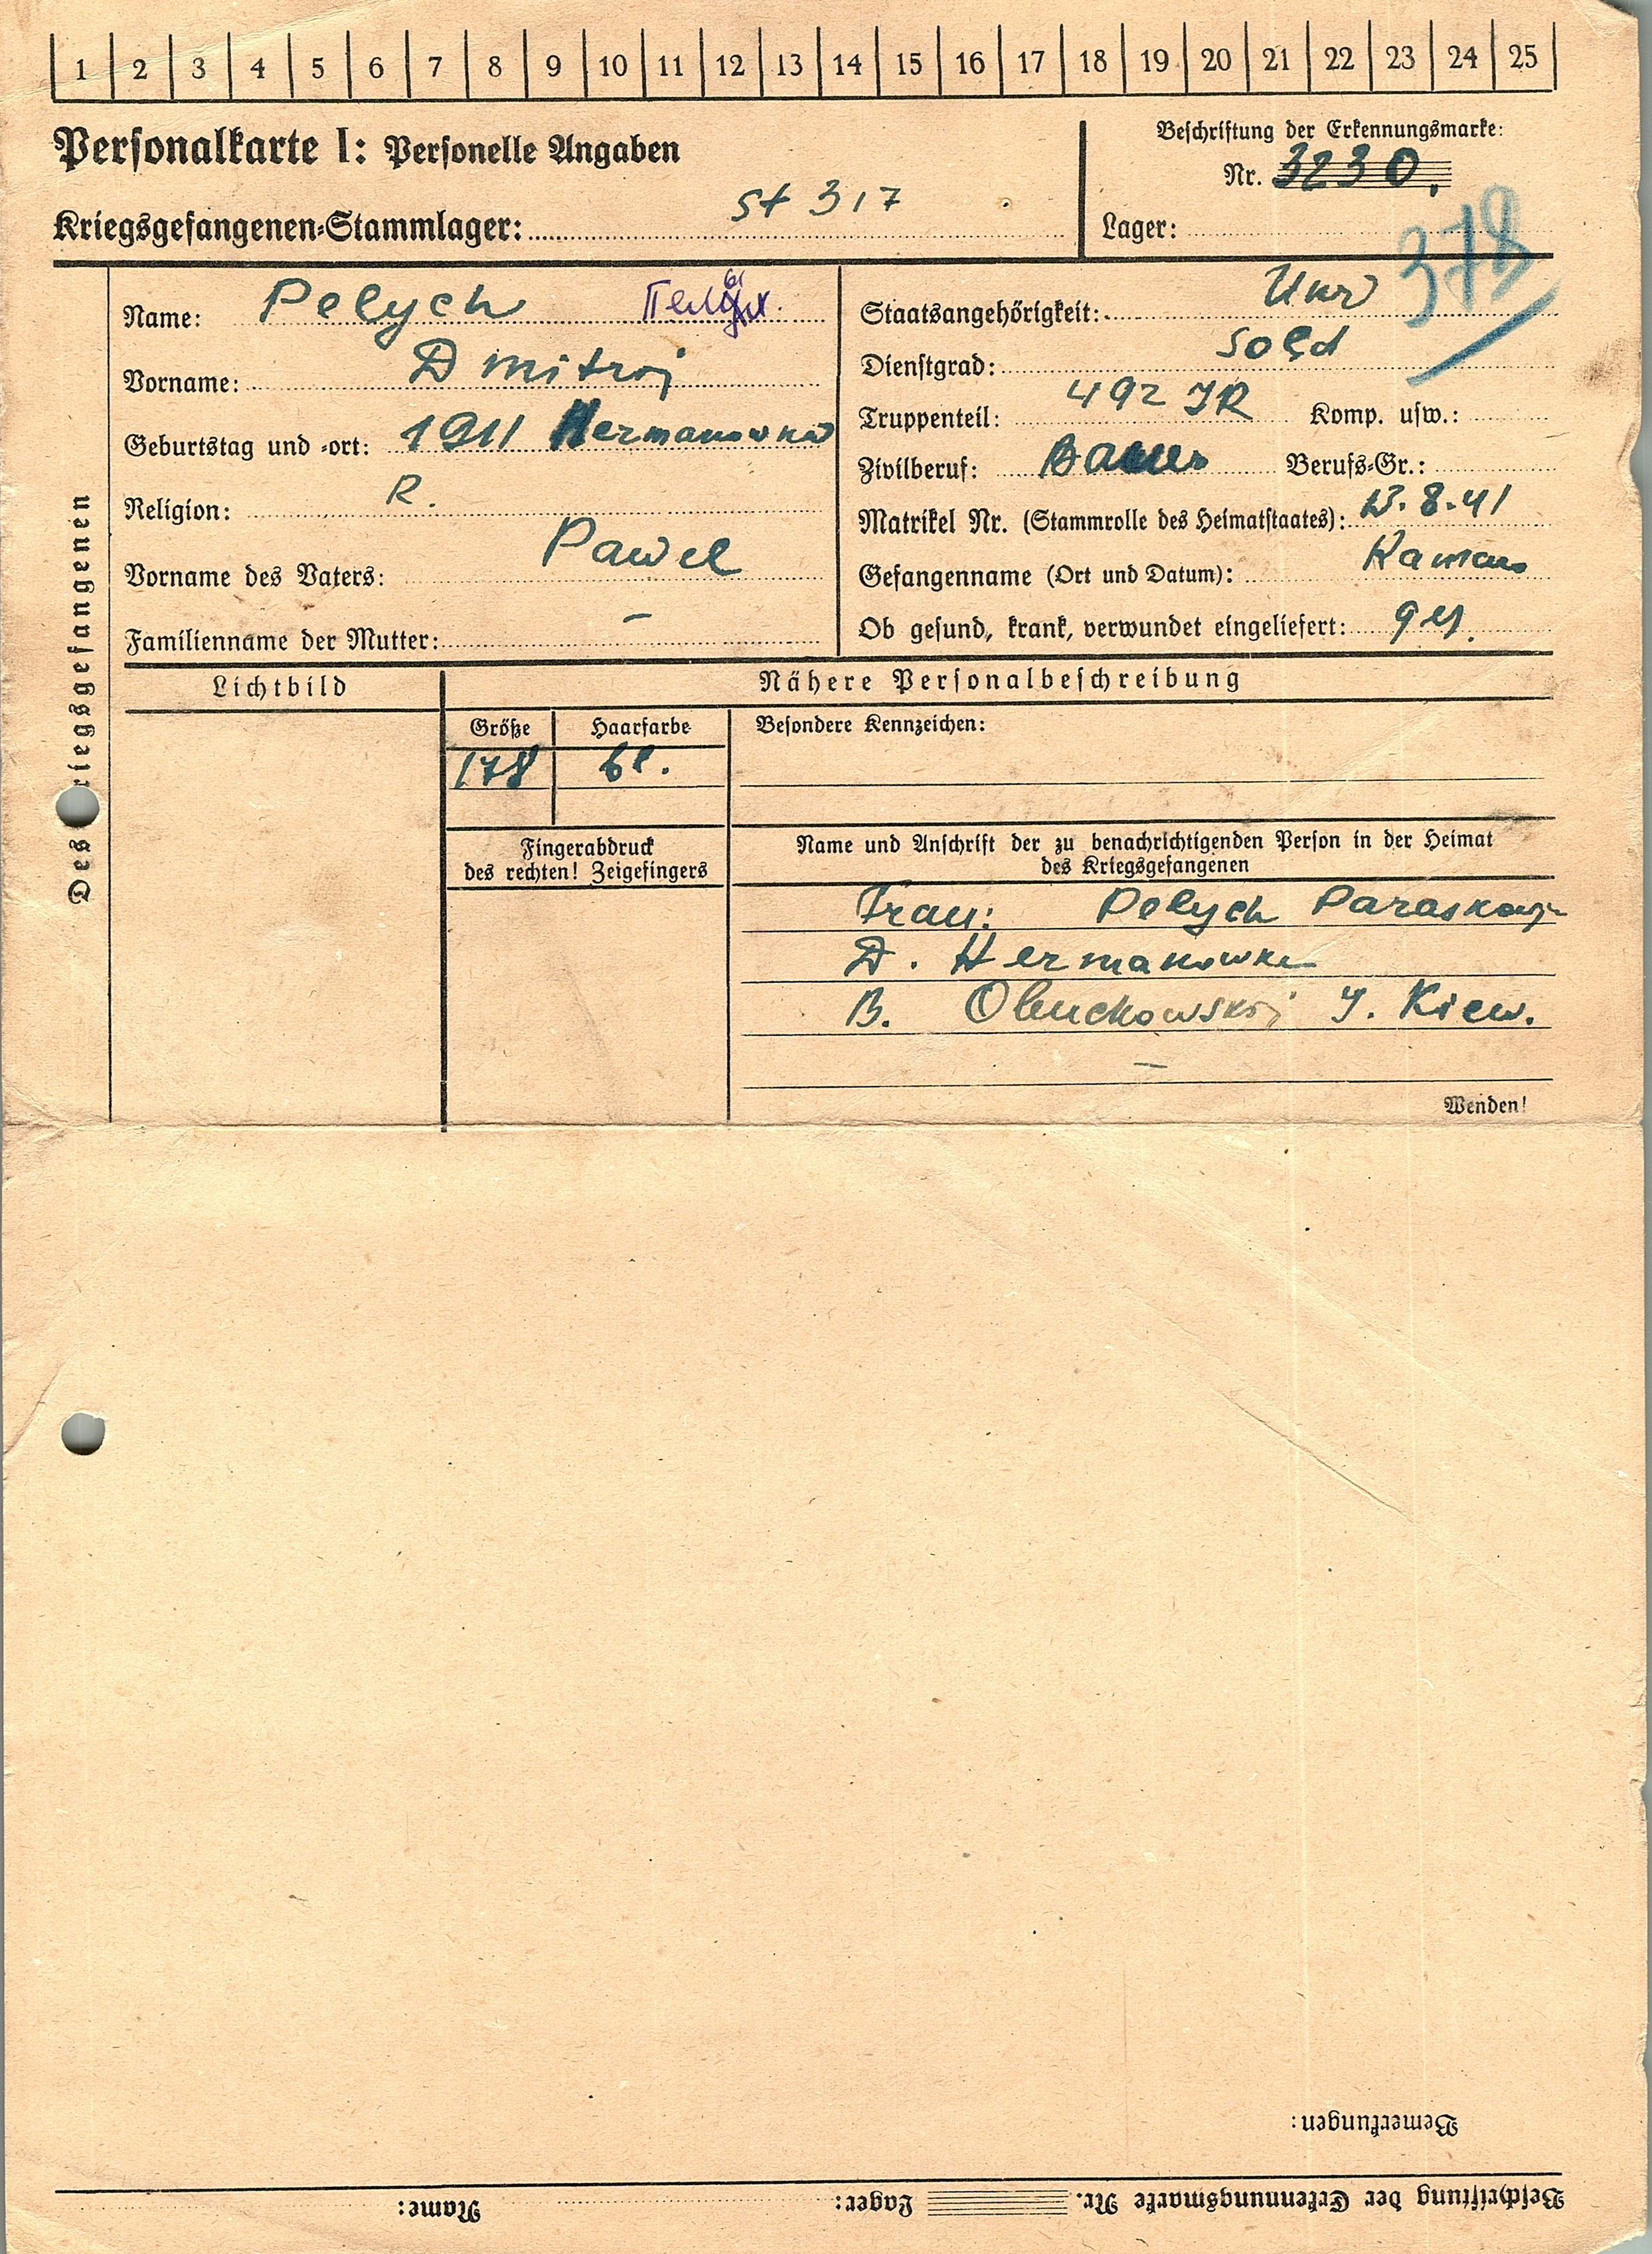 1 2 3 4 5 6 7 8 9 10 11 12 13 14 15 16 17 18 19 20 21 22 23 24 25
Personalkarte I: Personelle Angaben
Beschriftung der Erkennungsmarke:
Nr. 3230.
Kriegsgefangenen-Stammlager: St 317
Lager:
378
Des Kriegsgefangenen
Name: Pelych
Vorname: Dmitroj
Geburtstag und -ort: 1911 Hermanowka
Religion: R.
Vorname des Vaters: Pawel
Familienname der Mutter: –
Staatsangehörigkeit: Ukr
Dienstgrad: Sold
Truppenteil: 492 IR Komp. usw.:
Zivilberuf: Bauer Berufs-Gr.:
Matrikel Nr. (Stammrolle des Heimatstaates): 13.8.41
Gefangenname (Ort und Datum):
Ob gesund, krank, verwundet eingeliefert: ges.
Lichtbild
Nähere Personalbeschreibung
Größe Haarfarbe Besondere Kennzeichen:
178 bl.
Fingerabdruck
des rechten! Zeigefingers
Name und Anschrift der zu benachrichtigenden Person in der Heimat
des Kriegsgefangenen
Frau: Pelych
D. Hermanowka
B. Obuchowskoj I. Kiew.
–
Wenden!
Bemerkungen:
Beschriftung der Erkennungsmarke Nr. Lager: Name: